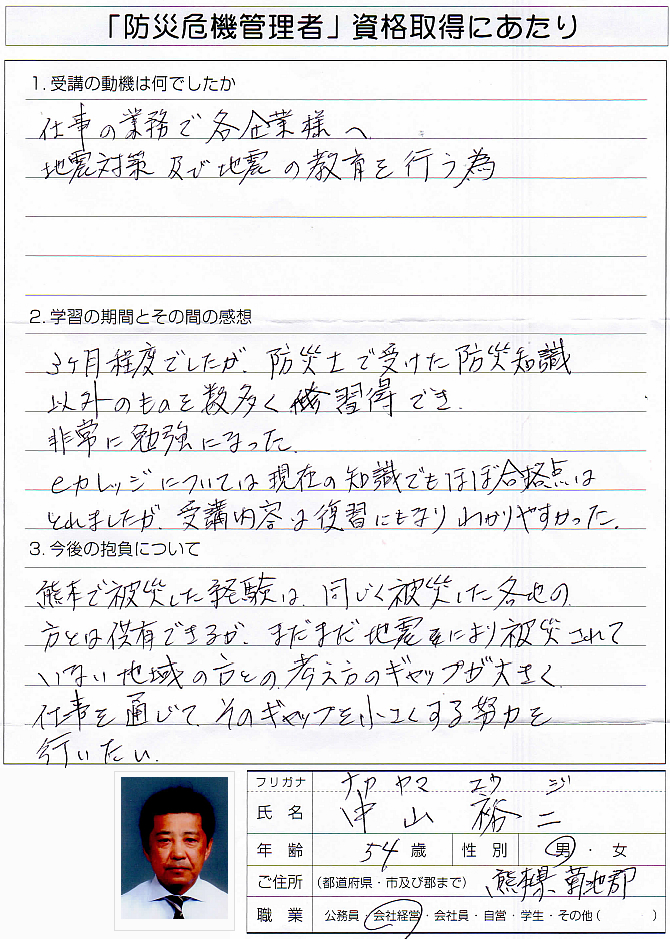 「防災危機管理者」資格取得にあたり
1. 受講の動機は何でしたか
仕事の業務で各企業様へ
地震対策及び地震の教育を行う為
2. 学習の期間とその間の感想
3ヶ月程度でしたが、防災士で受けた防災知識
以外のものを数多く習得でき、
非常に勉強になった。
eカレッジについては現在の知識でもほぼ合格点は
とれましたが、受講内容は復習にもなりわかりやすかった。
3. 今後の抱負について
熊本で被災した経験は、同じく被災した各地の
方とは供有できるが、まだまだ地震により被災されて
いない地域の方との考え方のギャップが大きく
仕事を通じて、そのギャップを小さくする努力を
行いたい。
フリガナ ナカヤマ ユウジ
氏名 中山 裕二
年齢 54歳 性別 男・女
ご住所 (都道府県・市及び郡まで) 熊本県菊池郡
職業 公務員・会社経営・会社員・自営・学生・その他( )